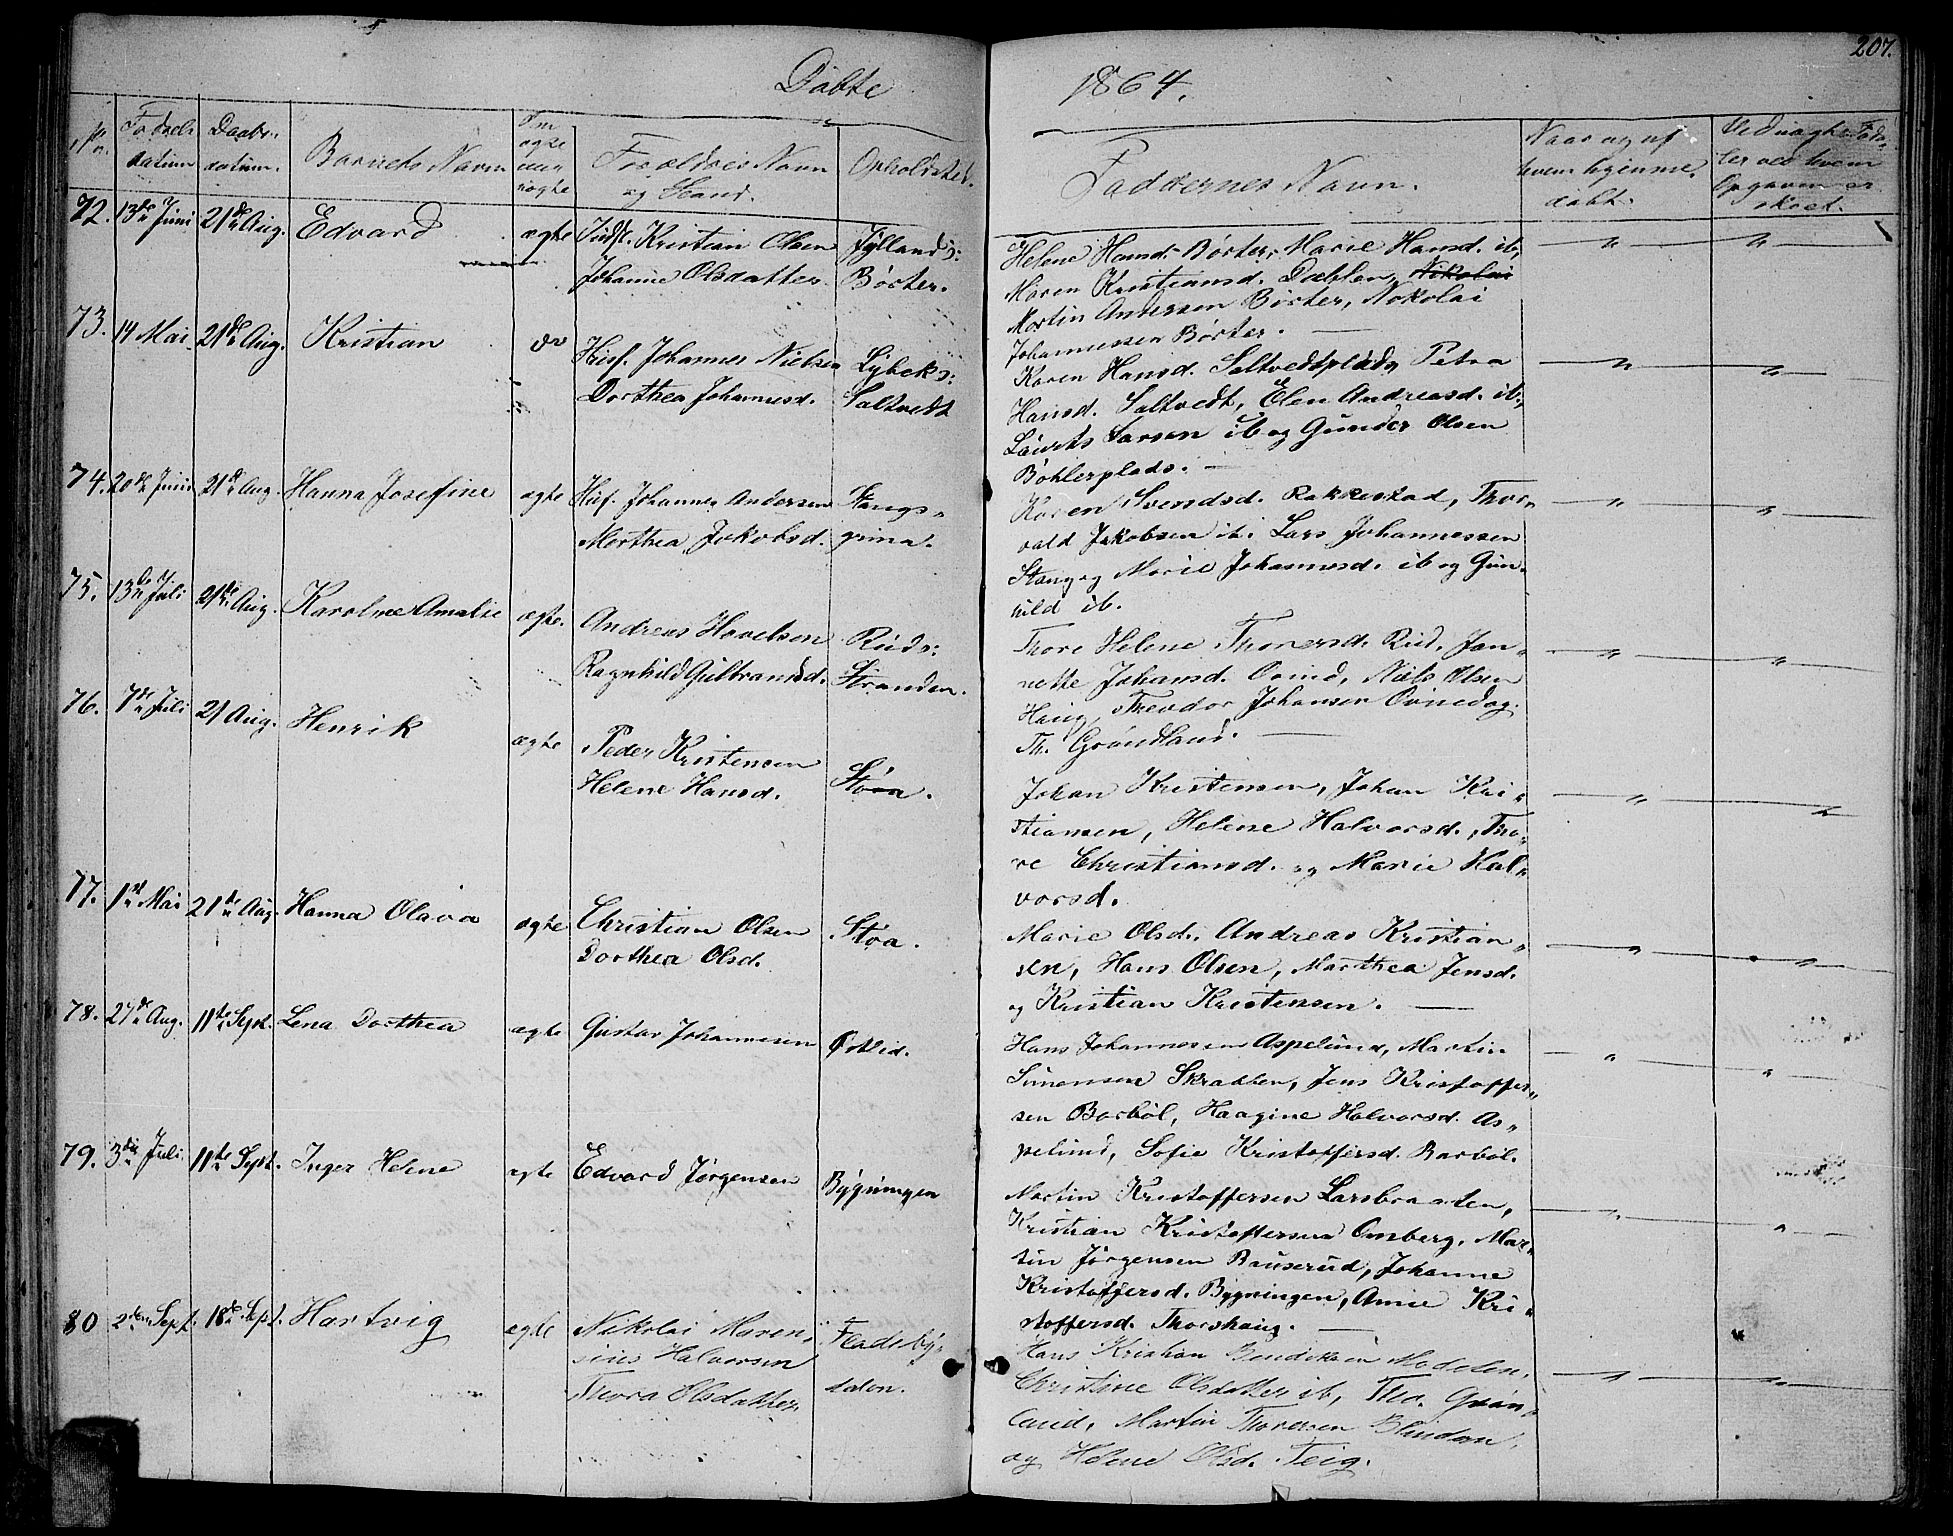 207.
Døbte 1864.
No. Fødsels datum Daabs- datum. Barnets Navn Om ægte eller uægte Forældres Navn og Stand. Opholdssted.
Faddernes Navn. Naar og af hvem hjemme- døbt.
72. 13de Juni 21de Aug. Edvard ægte Indst. Kristian Olsen Jyllands:
Johanne Olsdatter Børter.
Helene Hansd. Børter, Marie Hansd. ib,
Maren Kristiansd. Dæhlen, Nikolai
Martin Andersen Børter, Nokolai
Johannessen Børter.
73. 14 Mai 21de Aug. Kristian do Husf. Johannes Nielsen Lybeks:
Dorthea Johannesd. Saltvedt
Karen Hansd. Saltvedtplads, Petra
Hansd. Saltvedt, Elen Andreasd. ib,
Laurits Larsen ib og Gunder Olsen
Bøhlerplads.
74. 20de Juni 21de Aug. Hanna Josefine ægte Husf. Johannes Andersen Stangs-
Marthea Jakobsd. grina.
Karen Svendsd. Rakkestad, Thor-
vald Jakobsen ib. Lars Johannessen
Stang og Marie Johannesd. ib og Gun-
hild ib.
75. 13de Juli 21de Aug. Karoline Amalie ægte. Andreas Hovelsen Ruds:
Ragnhild Gulbrandsd. Stranden.
Thore Helene Thorersd. Rud, Jan-
nette Johansd. Ovind, Niels Olsen
Haug, Theodor Johansen Ovind og
Th. Grøndland.
76. 7de Juli 21 Aug. Henrik ægte Peder Kristensen
Helene Hansd. Støa.
Johan Kristensen, Johan Kri-
stiansen, Helene Halvorsd., Tho-
re Christiansd. og Marie Hal-
vorsd.
77. 1ste Mai 21de Aug. Hanna Olava ægte Christian Olsen Støa.
Dorthea Olsd.
Marie Olsd. Andreas Kristian-
sen, Hans Olsen, Marthea Jensd.
og Kristian Kristensen.
78. 27de Aug. 11te Sept. Lena Dorthea ægte Gustav Johannesen Østlid.
Hans Johannessen Aspelund, Martin
Simensen Skratten, Jens Kristoffer-
sen Barbøl, Haagine Halvorsd. As-
pelund, Sofie Kristoffersd. Barbøl.
79. 3die Juli 11te Sept. Inger Helene ægte Edvard Jørgensen Bygningen
Martin Kristoffersen Larsbraaten,
Kristian Kristoffersen Omberg, Mar-
tin Jørgensen Bauserud, Johanne
Kristoffersd. Bygningen, Anne Kri-
stoffersd. Thorshaug.
80 2den Sept. 18de Sept. Hartvig ægte Nikolai Maren- Fladeby-
sius Halvorsen dalen.
Thora Olsdatter
Hans Kristian Bendiksen Modelen,
Christine Olsdatter ib, Tho. Grøn-
lund, Martin Thoresen
og Helene Olsd. Teig.